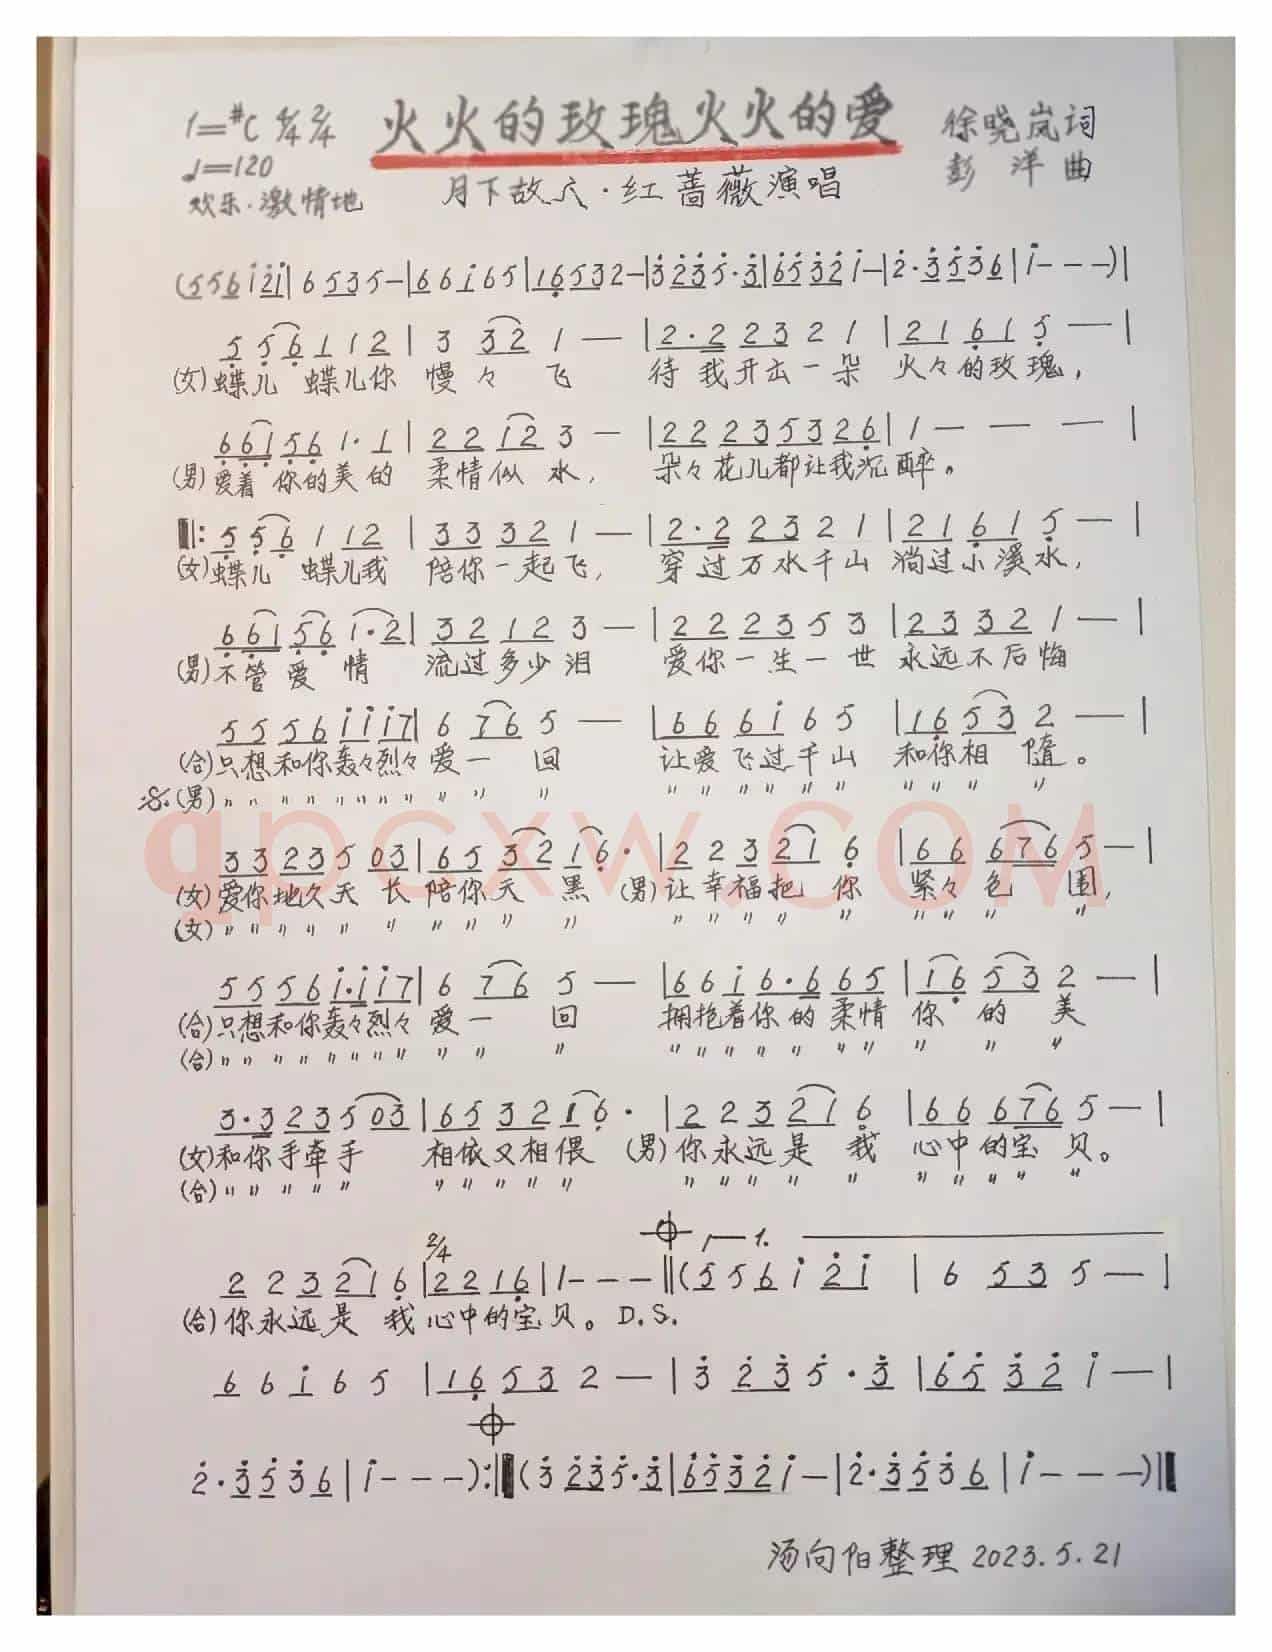 1=#C 4/4 2/4 火火的玫瑰火火的爱 徐晓岚词
♩=120 彭 洋 曲
欢乐·激情地 月下故人·红蔷薇演唱
(5 5 6 1 2 1 | 6 5 3 5 — | 6 6 1 6 5 | 1 6 5 3 2 — | 3 2 3 5 · 3 | 6 5 3 2 1 — | 2 · 3 5 3 6 | 1 - - - ) |
5 5 6 1 1 2 | 3 3 2 1 — | 2 · 2 2 3 2 1 | 2 1 6 1 5 — |
(女) 蝶儿 蝶儿你 慢々 飞 待 我开出一朵 火々的玫瑰,
6 6 1 5 6 1 · 1 | 2 2 1 2 3 — | 2 2 2 3 5 3 2 6 | 1 — — — |
(男) 爱着 你的美的 柔情似 水, 朵々花儿都让我沉 醉。
‖: 5 5 6 1 1 2 | 3 3 3 2 1 — | 2 · 2 2 3 2 1 | 2 1 6 1 5 — |
(女) 蝶儿 蝶儿我 陪你一起飞, 穿过万水千山 淌过小溪水,
6 6 1 5 6 1 · 2 | 3 2 1 2 3 — | 2 2 2 3 5 3 | 2 3 3 2 1 — |
(男) 不管爱 情 流过多少泪 爱你一生一世 永远不后悔
5 5 5 6 1 1 1 7 | 6 7 6 5 — | 6 6 6 1 6 5 | 1 6 5 3 2 — |
(合) 只想和你轰々烈々 爱一 回 让爱飞过千山 和你相 随。
:S: (男) 〃 〃 〃 〃 〃 〃 〃 〃 〃 〃 〃 〃 〃 〃 〃 〃 〃 〃 〃 〃 〃
3 3 2 3 5 0 3 | 6 5 3 2 1 6 · | 2 2 3 2 1 6 | 6 6 6 7 6 5 — |
(女) 爱你地久天 长 陪你天 黑 (男) 让幸福把 你 紧々包 围,
(女) 〃 〃 〃 〃 〃 〃 〃 〃 〃 〃 〃 〃 〃 〃 〃 〃 〃 〃 〃
5 5 5 6 1 · 1 1 7 | 6 7 6 5 — | 6 6 1 6 · 6 6 5 | 1 6 5 3 2 — |
(合) 只想和你轰々烈々 爱一 回 拥抱着你的柔情 你 的 美
(合) 〃 〃 〃 〃 〃 〃 〃 〃 〃 〃 〃 〃 〃 〃 〃 〃 〃 〃 〃 〃 〃
3 · 3 2 3 5 0 3 | 6 5 3 2 1 6 · | 2 2 3 2 1 6 | 6 6 6 7 6 5 — |
(女) 和你手牵手 相依又相偎 (男) 你永远是 我 心中的宝 贝。
(合) 〃 〃 〃 〃 〃 〃 〃 〃 〃 〃 〃 〃 〃 〃 〃 〃 〃 〃 〃 〃
2/4 1.
2 2 3 2 1 6 | 2 2 1 6 | 1 - - - ‖ (5 5 6 1 2 1 | 6 5 3 5 — |
(合) 你永远是 我 心中的宝贝。 D.S.
6 6 1 6 5 | 1 6 5 3 2 — | 3 2 3 5 · 3 | 6 5 3 2 1 — |
2 · 3 5 3 6 | 1 - - - ) :‖ (3 2 3 5 · 3 | 6 5 3 2 1 — | 2 · 3 5 3 6 | 1 - - - ) ‖
汤向阳整理 2023.5.21
qpcxw.COM